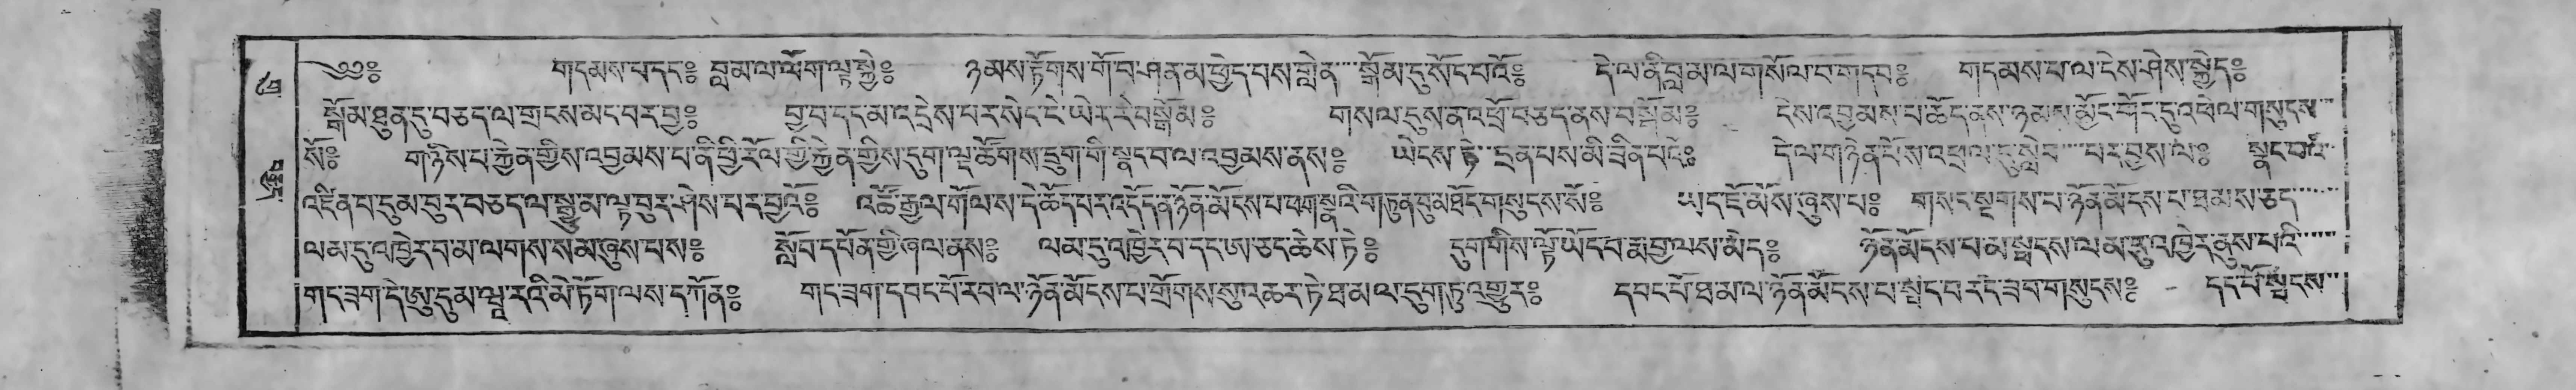 ༄༅༔ གདམས་པ་དང་༔ བླ་མ་ལ་ལོག་ལྟ་སྐྱེ༔ ཉམས་རྟོགས་གོ་བ་ཤན་མ་ཕྱེད་པས་གླེན་སྒོམ་དུ་སོང་བའོ༔ དེ་ལ་ནི་བླ་མ་ལ་གསོལ་བ་གདབ༔ གདམས་པ་ལ་ངེས་ཤེས་སྐྱེད༔
སྒོམ་ཐུན་དུ་བཅད་ལ་གྲངས་མང་བར་བྱ༔ བྱ་བ་དང་མ་འདྲེས་པར་སེང་ངེ་ཡེར་རེ་བསྒོམ༔ གསལ་དུས་ན་འཕྲོ་བཅད་ནས་བསྒོམ༔ དེས་འབྱམས་པ་ཆོད་ནས་ཉམས་མྱོང་གོང་དུ་འཕེལ་གསུངས
སོ༔ གཉིས་པ་རྐྱེན་གྱིས་འབྱམས་པ་ནི་ཕྱི་རོལ་གྱི་རྐྱེན་གྱིས་དུག་ལྔ་ཚོགས་དྲུག་གི་སྣང་བ་ལ་འབྱམས་ནས༔ ཡེངས་ཏེ་དྲན་པས་མི་ཟིན་པའོ༔ དེ་ལ་གཉེན་པོས་འཕྲལ་དུ་སླེབ་པར་བྱས་ལ༔ སྣང་བའི
འཛིན་པ་དུམ་བུར་བཅད་ལ་སྒྱུ་མ་ལྟ་བུར་ཤེས་པར་བྱའོ༔ འཚོ་རྒྱལ་གོལ་ས་དེ་ཆོད་པར་འདོད་ན་ཉོན་མོངས་པ་ཕག་སྣའི་གཏུན་བུམ་ཐོང་གསུངས་སོ༔ ཡང་ཇོ་མོས་ཞུས་པ༔ གསང་སྔགས་པ་ཉོན་མོངས་པ་ཐམས་ཅད
ལམ་དུ་འཁྱེར་བ་མ་ལགས་སམ་ཞུས་པས༔ སློབ་དཔོན་གྱི་ཞལ་ནས༔ ལམ་དུ་འཁྱེར་བ་དང་ཨ་ཅང་ཆེས་ཏེ༔ དུག་གིས་ལྟོ་ཡོད་པ་རྨ་བྱ་ལས་མེད༔ ཉོན་མོངས་པ་མ་སྤངས་ལམ་དུ་འཁྱེར་ནུས་པའི
གང་ཟག་དེ་ཨུ་དུམ་ཝཱ་རའི་མེ་ཏོག་ལས་དཀོན༔ གང་ཟག་དབང་པོ་རབ་ལ་ཉོན་མོངས་པ་གྲོགས་སུ་འཆར་ཏེ་ཐ་མ་ལ་དུག་ཏུ་འགྱུར༔ དབང་པོ་ཐ་མ་ལ་ཉོན་མོངས་པ་སྤང་པ་རང་ཟབ་གསུངས༔ དང་པོ་སྤངས